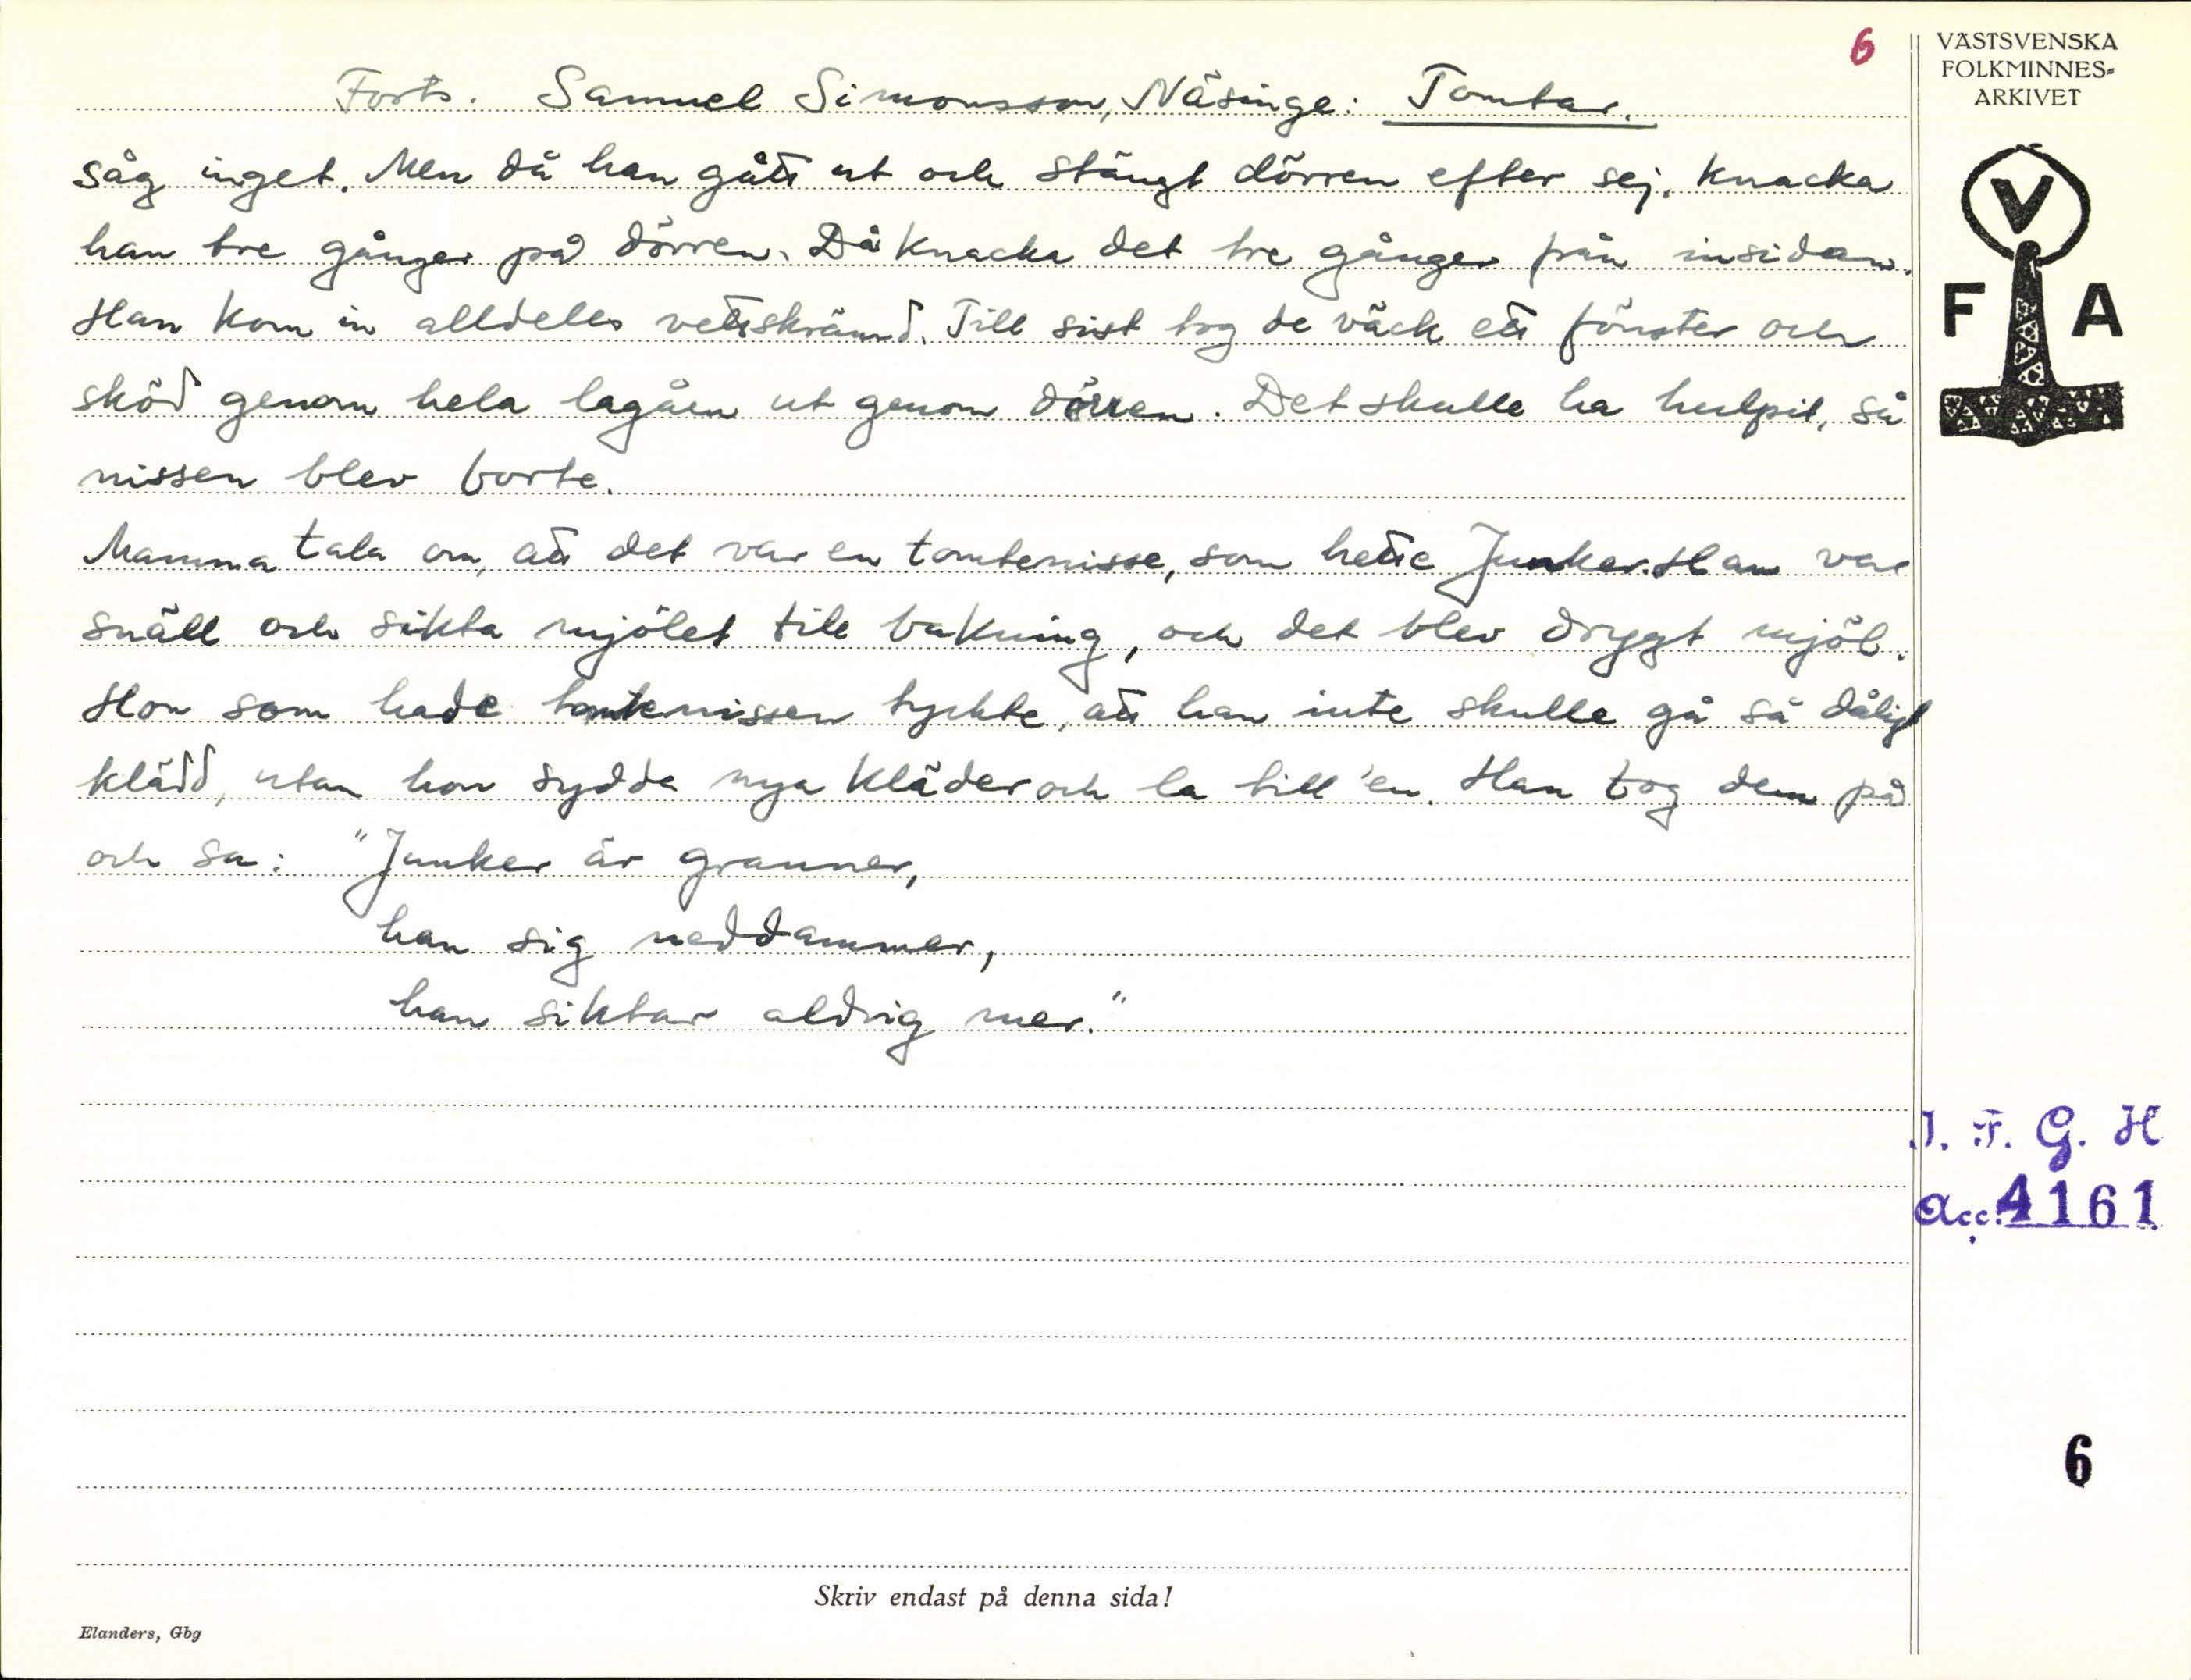 6
VÄSTSVENSKA
FOLKMINNES-
ARKIVET
V
F A
Forts. Samuel Simonsson, Näsinge: Tomtar.
såg inget. Men då han gått ut och stängt dörren efter sej, knacka
han tre gånger på dörren. Då knacka det tre gånger från insidan.
Han kom in alldeles vettskrämd. Till sist tog de väck ett fönster och
sköd genom hela lagåen ut genom dörren. Det skulle ha hulpit, så
nissen blev borte.
Mamma tala om, att det var en tomtenisse, som hette Junker. Han var
snäll och sikta mjölet till bakning, och det blev drygt mjöl.
Hon som hade tomtenissen tyckte, att han inte skulle gå så dåligt
klädd, utan hon sydda nya kläder och la till 'en. Han tog dem på
och sa: "Junker är granner,
han sig neddammer,
han siktar aldrig mer."
I. F. G. H
Acc. 4161
6
Skriv endast på denna sida!
Elanders, Gbg